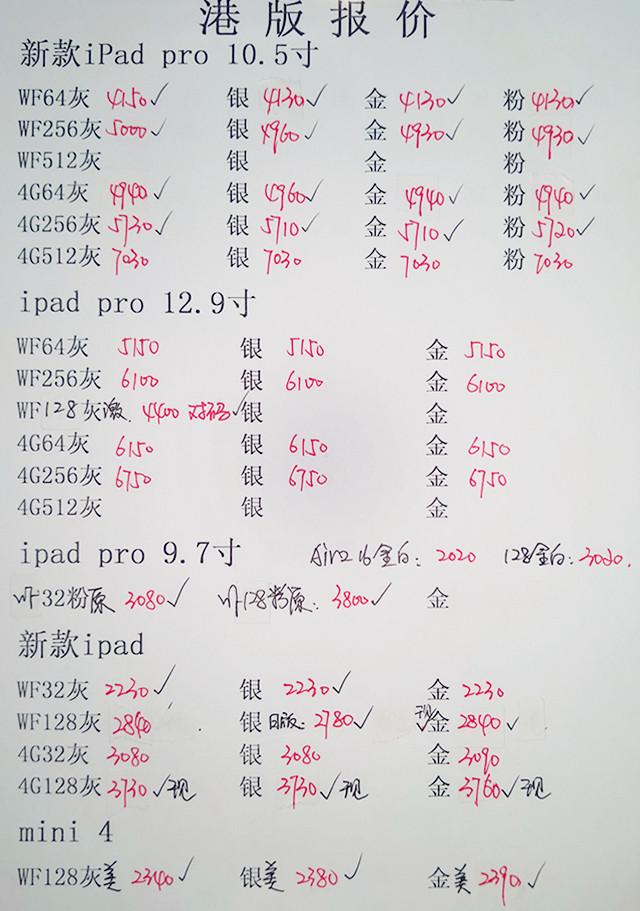 港版报价
新款iPad pro 10.5寸
WF64灰 4150✓ 银 4130✓ 金 4130✓ 粉 4130✓
WF256灰 5000✓ 银 4960✓ 金 4930✓ 粉 4930✓
WF512灰 银 金 粉
4G64灰 4940✓ 银 4960✓ 金 4940✓ 粉 4940✓
4G256灰 5730✓ 银 5710✓ 金 5710✓ 粉 5720✓
4G512灰 7030 银 7030 金 7030 粉 7030
ipad pro 12.9寸
WF64灰 5150 银 5150 金 5150
WF256灰 6100 银 6100 金 6100
WF128灰激. 4400 对码✓ 银 金
4G64灰 6150 银 6150 金 6150
4G256灰 6750 银 6750 金 6750
4G512灰 银 金
ipad pro 9.7寸 Air2 16金白: 2020 128金白: 3020.
WF32粉原 3080✓ WF128粉原: 3800✓ 金
新款ipad
WF32灰 2230✓ 银 2230✓ 金 2230
WF128灰 2840 银 日版: 2780✓ 现金 2840✓
4G32灰 3080 银 3080 金 3090
4G128灰 3730✓现 银 3730✓现 金 3760✓现
mini 4
WF128灰美 2340✓ 银美 2380✓ 金美 2390✓